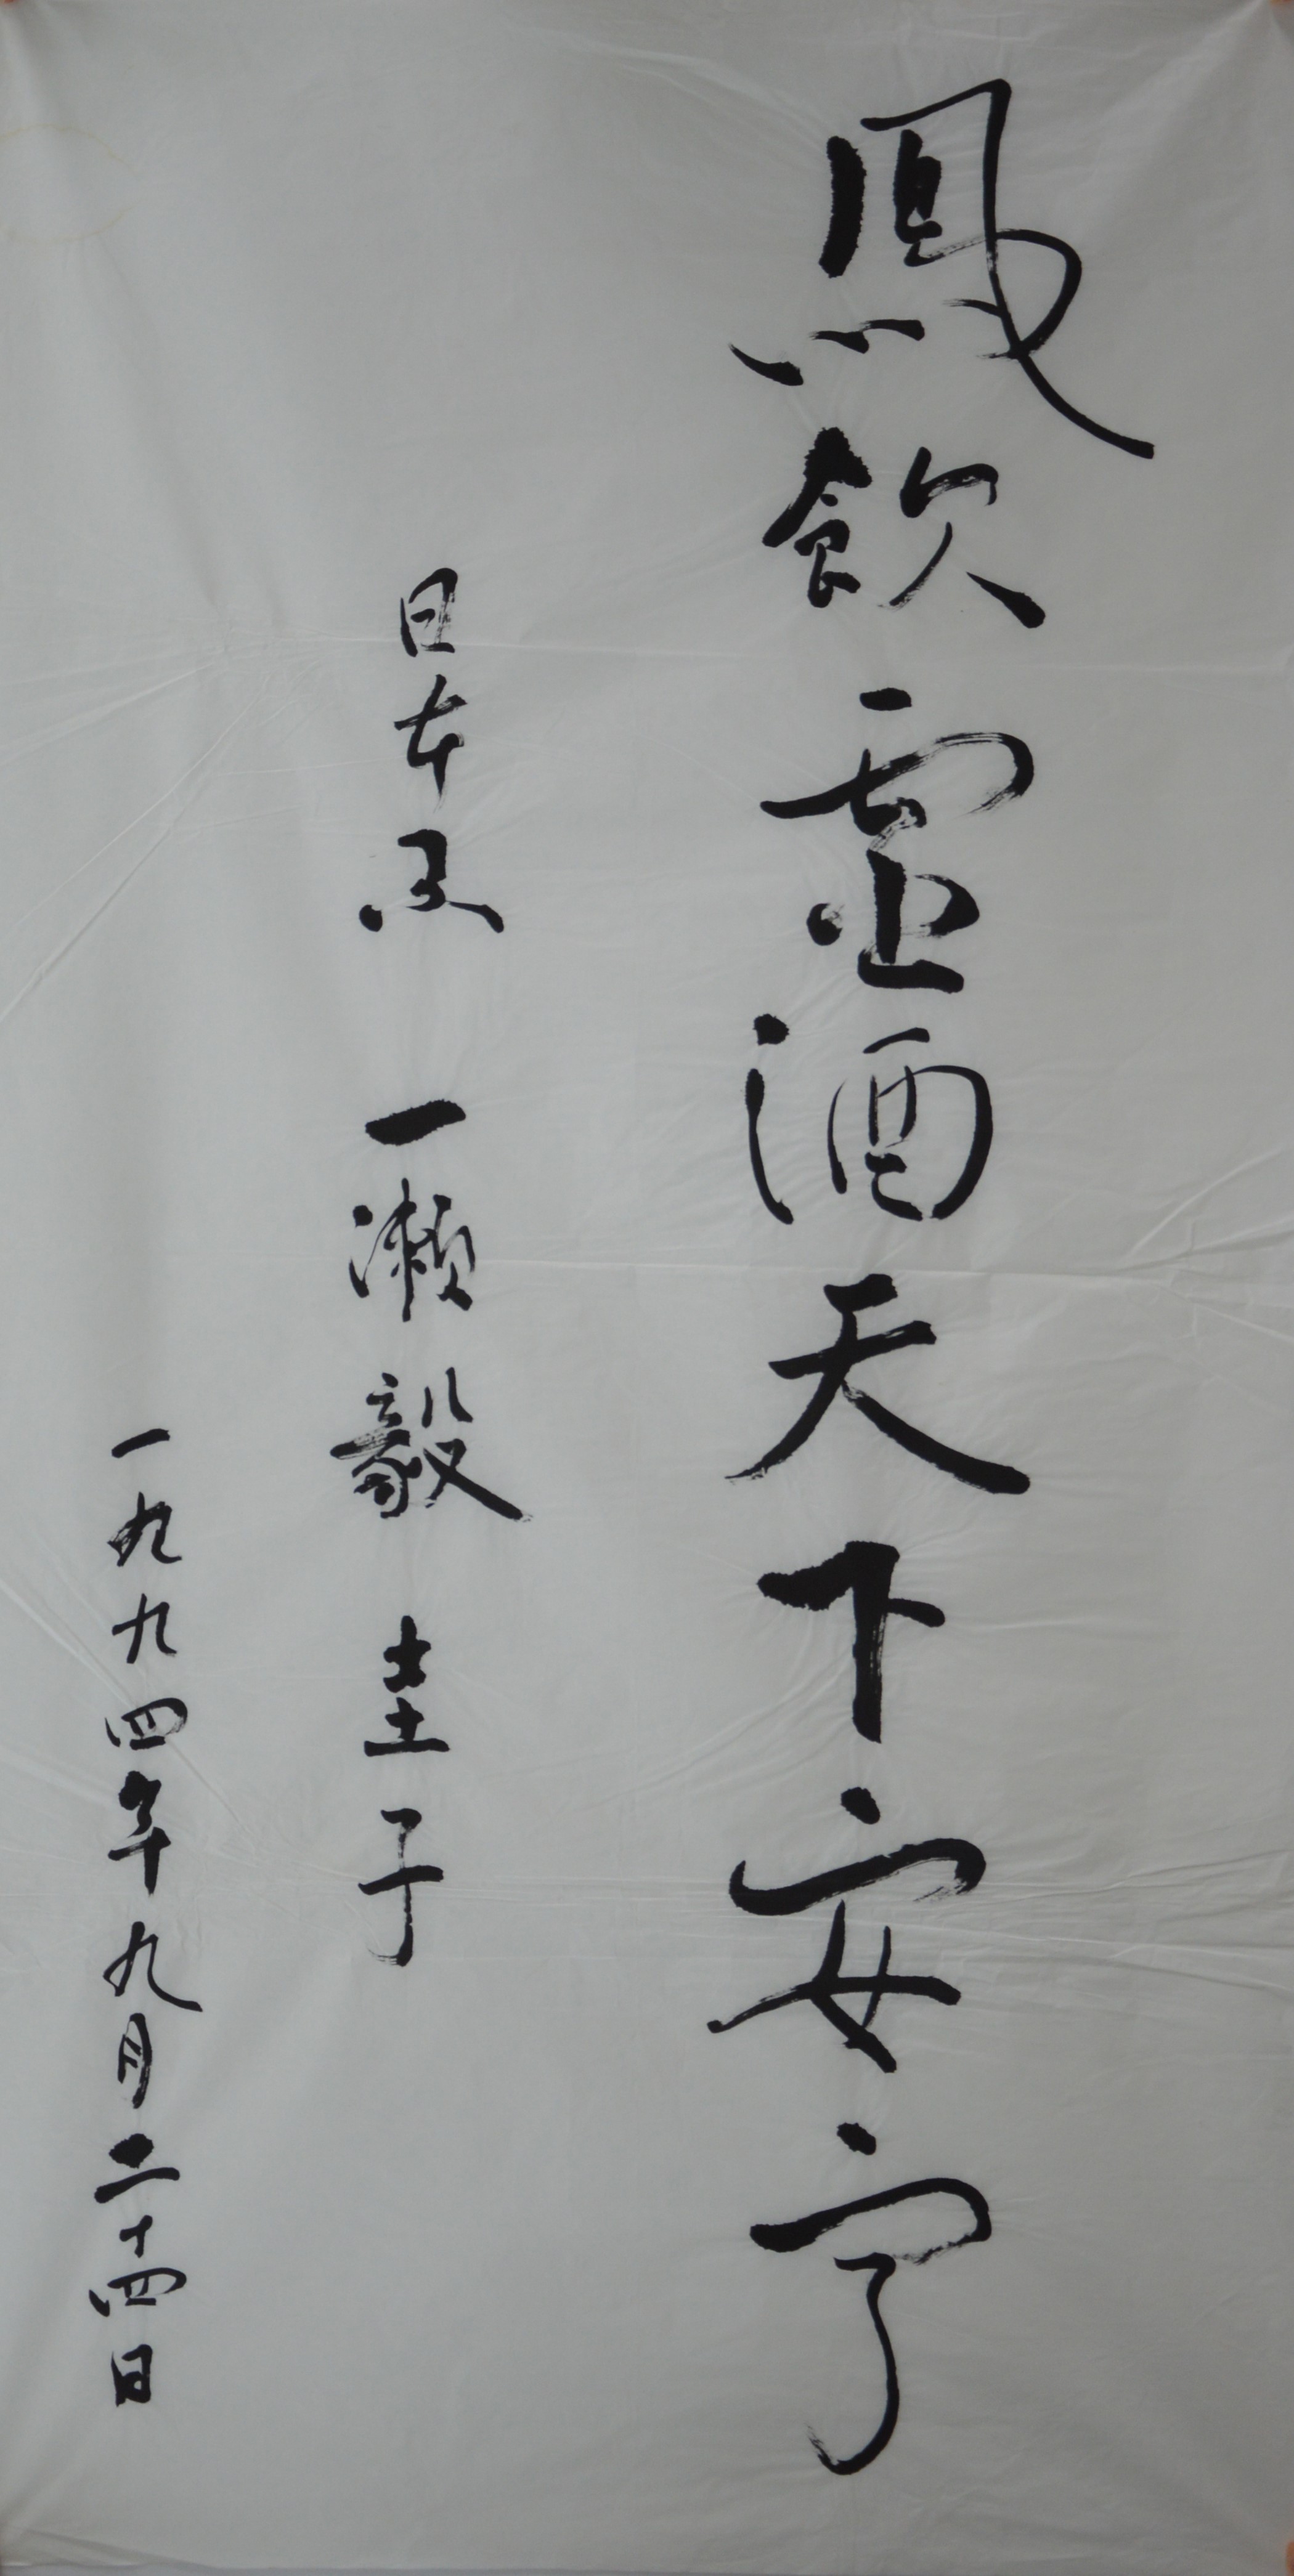 鳳飲霊酒天下安宁
日本 一瀬毅 圭子
一九九四年九月二十四日